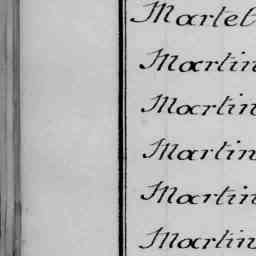 Martel
Martin
Martin
Martin
Martin
Martin